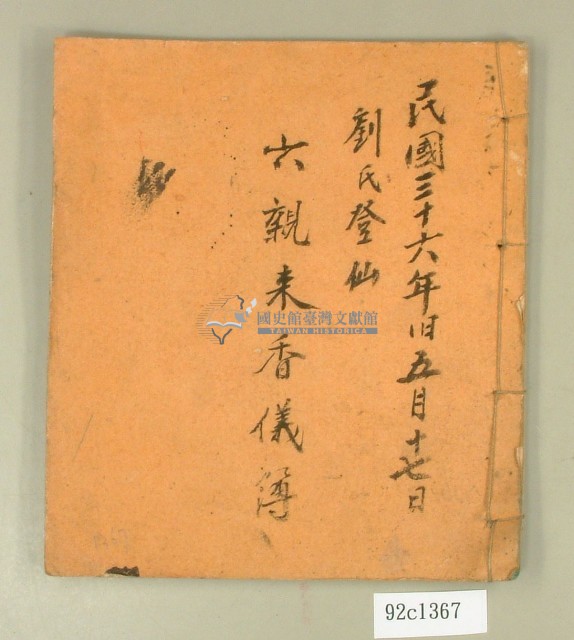 民國三十六年旧五月十七日
劉氏登仙
六親来香儀簿
國史館臺灣文獻館
TAIWAN HISTORICA
92c1367